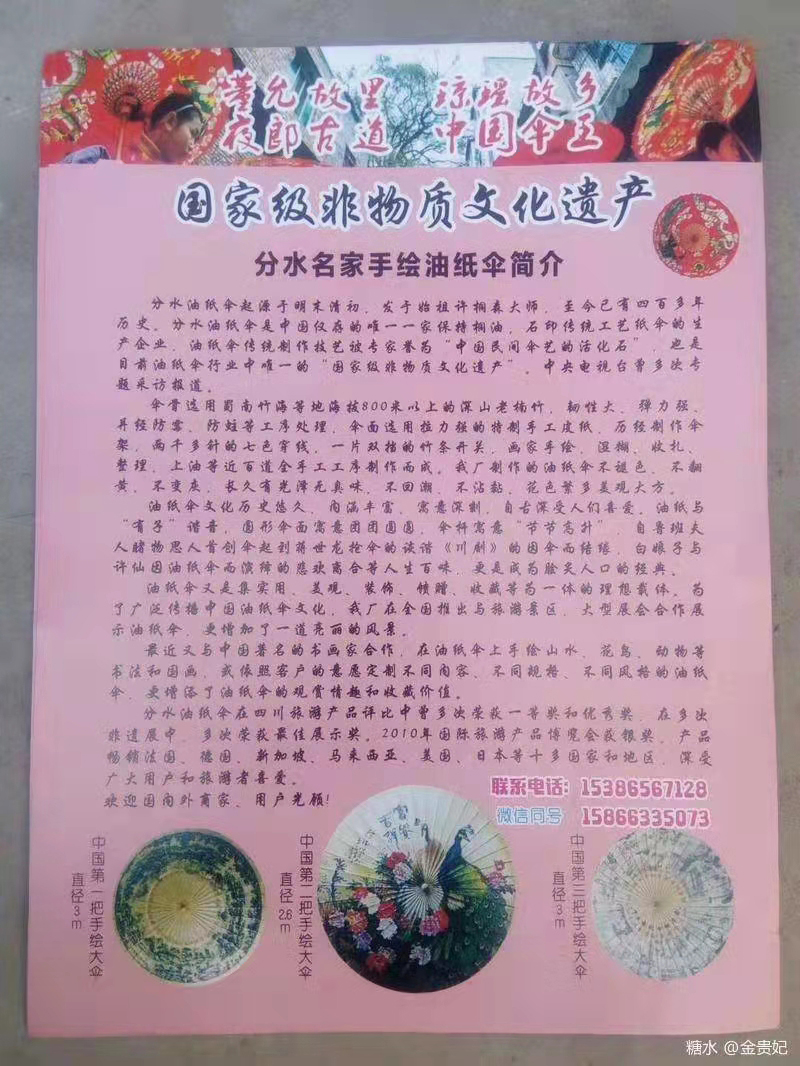 董允故里 琼瑶故乡
夜郎古道 中国伞王
国家级非物质文化遗产
分水名家手绘油纸伞简介
分水油纸伞起源于明末清初，发于始祖许桐森大师，至今已有四百多年
历史。分水油纸伞是中国仅存的唯一一家保持桐油，石印传统工艺纸伞的生
产企业，油纸伞传统制作技艺被专家誉为“中国民间伞艺的活化石”，也是
目前油纸伞行业中唯一的“国家级非物质文化遗产”。中央电视台曾多次专
题采访报道。
伞骨选用蜀南竹海等地海拔800米以上的深山老楠竹，韧性大、弹力强、
并经防霉、防蛀等工序处理，伞面选用拉力强的特制手工皮纸，历经制作伞
架，两千多针的七色穿线，一片双挡的竹条开关，画家手绘，湿糊、收扎、
整理、上油等近百道全手工工序制作而成。我厂制作的油纸伞不褪色、不翻
黄、不变灰、长久有光泽无臭味、不回潮、不沾黏、花色繁多美观大方。
油纸伞文化历史悠久，内涵丰富、寓意深刻，自古深受人们喜爱。油纸与
“有子”谐音，圆形伞面寓意团团圆圆，伞杆寓意“节节高升”，自鲁班夫
人睹物思人首创伞起到蒋世龙抢伞的诙谐《川剧》的因伞而结缘，白娘子与
许仙因油纸伞而演绎的悲欢离合等人生百味，更是成为脍炙人口的经典。
油纸伞又是集实用、美观、装饰、馈赠、收藏等为一体的理想载体。为
了广泛传播中国油纸伞文化，我厂在全国推出与旅游景区、大型展会合作展
示油纸伞，更增加了一道亮丽的风景。
最近又与中国著名的书画家合作，在油纸伞上手绘山水、花鸟、动物等
书法和国画，或依照客户的意愿定制不同内容、不同规格、不同风格的油纸
伞，更增添了油纸伞的观赏情趣和收藏价值。
分水油纸伞在四川旅游产品评比中曾多次荣获一等奖和优秀奖，在多次
非遗展中，多次荣获最佳展示奖。2010年国际旅游产品博览会获银奖，产品
畅销法国、德国、新加坡、马来西亚、美国、日本等十多国家和地区，深受
广大用户和旅游者喜爱。
欢迎国内外商家、用户光顾！
联系电话：15386567128
微信同号 15866335073
中国第一把手绘大伞
直径3m
中国第二把手绘大伞
直径2.6m
中国第三把手绘大伞
直径3m
糖水 @金贵妃